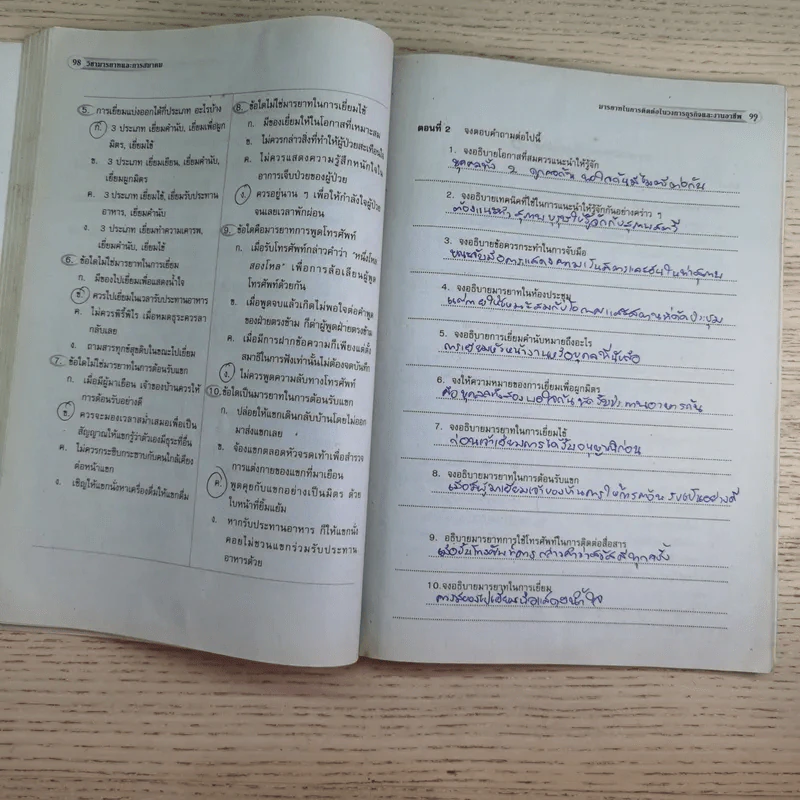 98 วิชามารยาทและการสมาคม
5. การเยี่ยมแบ่งออกได้กี่ประเภท อะไรบ้าง
ก. 3 ประเภท เยี่ยมคำนับ, เยี่ยมเพื่อผูก
มิตร, เยี่ยมไข้
ข. 3 ประเภท เยี่ยมเยียน, เยี่ยมคำนับ,
เยี่ยมผูกมิตร
ค. 3 ประเภท เยี่ยมไข้, เยี่ยมรับประทาน
อาหาร, เยี่ยมคำนับ
ง. 3 ประเภท เยี่ยมทำความเคารพ,
เยี่ยมคำนับ, เยี่ยมไข้
6. ข้อใดไม่ใช่มารยาทในการเยี่ยม
ก. มีของไปเยี่ยมเพื่อแสดงน้ำใจ
ข. ควรไปเยี่ยมในเวลารับประทานอาหาร
ค. ไม่ควรพิรี้พิไร เมื่อหมดธุระควรลา
กลับเลย
ง. ถามสารทุกข์สุขดิบในขณะไปเยี่ยม
7. ข้อใดไม่ใช่มารยาทในการต้อนรับแขก
ก. เมื่อมีผู้มาเยือน เจ้าของบ้านควรให้
การต้อนรับอย่างดี
ข. ควรจะมองเวลาสม่ำเสมอเพื่อเป็น
สัญญาณให้แขกรู้ว่าตัวเองมีธุระที่อื่น
ค. ไม่ควรกระซิบกระซาบกับคนใกล้เคียง
ต่อหน้าแขก
ง. เชิญให้แขกนั่งหาเครื่องดื่มให้แขกดื่ม
8. ข้อใดไม่ใช่มารยาทในการเยี่ยมไข้
ก. มีของเยี่ยมให้ในโอกาสที่เหมาะสม
ข. ไม่ควรกล่าวสิ่งที่ทำให้ผู้ป่วยสะเทือนใจ
ค. ไม่ควรแสดงความรู้สึกหนักใจใน
อาการเจ็บป่วยของผู้ป่วย
ง. ควรอยู่นาน ๆ เพื่อให้กำลังใจผู้ป่วย
จนเลยเวลาพักผ่อน
9. ข้อใดคือมารยาทการพูดโทรศัพท์
ก. เมื่อรับโทรศัพท์กล่าวคำว่า "หนึ่งโหล
สองโหล" เพื่อการล้อเลียนผู้พูด
โทรศัพท์ด้วยกัน
ข. เมื่อพูดจบแล้วเกิดไม่พอใจต่อคำพูด
ของฝ่ายตรงข้าม ก็ด่าผู้พูดฝ่ายตรงข้าม
ค. เมื่อมีการฝากข้อความก็เพียงแต่ตั้ง
สมาธิในการฟังเท่านั้นไม่ต้องจดบันทึก
ง. ไม่ควรพูดความลับทางโทรศัพท์
10. ข้อใดเป็นมารยาทในการต้อนรับแขก
ก. ปล่อยให้แขกเดินกลับบ้านโดยไม่ออก
มาส่งแขกเลย
ข. จ้องแขกตลอดหัวจรดเท้าเพื่อสำรวจ
การแต่งกายของแขกที่มาเยือน
ค. พูดคุยกับแขกอย่างเป็นมิตร ด้วย
ใบหน้าที่ยิ้มแย้ม
ง. หากรับประทานอาหาร ก็ให้แขกนั่ง
คอยไม่ชวนแขกร่วมรับประทาน
อาหารด้วย
มารยาทในการติดต่อในวงการธุรกิจและงานอาชีพ 99
ตอนที่ 2 จงตอบคำถามต่อไปนี้
1. จงอธิบายโอกาสที่สมควรแนะนำให้รู้จัก
บุคคลทั้ง 2 ถูกคอกัน พอใจกัน
2. จงอธิบายเทคนิคที่ใช้ในการแนะนำให้รู้จักกันอย่างคร่าว ๆ
ต้องแนะนำสุภาพบุรุษให้รู้จักกับสุภาพสตรี
3. จงอธิบายข้อควรกระทำในการจับมือ
4. จงอธิบายมารยาทในห้องประชุม
แต่งกายให้เหมาะสมกับโอกาสและสถานที่จัดประชุม
5. จงอธิบายการเยี่ยมคำนับหมายถึงอะไร
การเยี่ยมหัวหน้างานหรือบุคคลที่นับถือ
6. จงให้ความหมายของการเยี่ยมเพื่อผูกมิตร
คือ บุคคลทั้งสองพอใจกัน ทานอาหารกัน
7. จงอธิบายมารยาทในการเยี่ยมไข้
ก่อนเข้าเยี่ยมควรได้รับอนุญาตก่อน
8. จงอธิบายมารยาทในการต้อนรับแขก
เมื่อมีผู้มาเยี่ยมเจ้าของบ้านควรให้การต้อนรับเป็นอย่างดี
9. อธิบายมารยาทการใช้โทรศัพท์ในการติดต่อสื่อสาร
เมื่อรับโทรศัพท์ควรกล่าวคำว่าสวัสดีทุกครั้ง
10. จงอธิบายมารยาทในการเยี่ยม
ควรมีของไปเยี่ยมเพื่อแสดงน้ำใจ